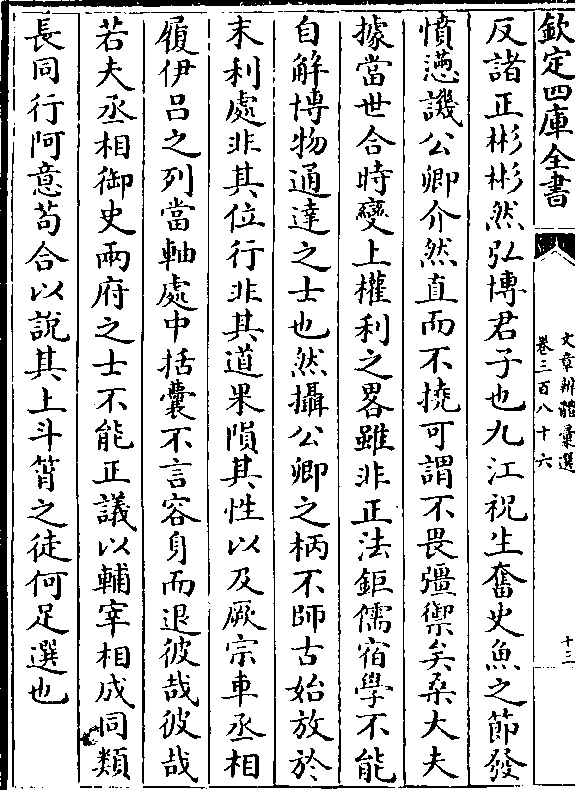 欽定四庫全書
文章辨體彙選
卷三百八十六
十三
反諸正彬彬然弘博君子也九江祝生奮史魚之節發
憤懣譏公卿介然直而不撓可謂不畏彊禦矣桑大夫
據當世合時變上權利之畧雖非正法鉅儒宿學不能
自解博物通達之士也然攝公卿之柄不師古始放於
末利處非其位行非其道果隕其性以及厥宗車丞相
履伊吕之列當軸處中括囊不言容身而退彼哉彼哉
若夫丞相御史兩府之士不能正議以輔宰相成同類
長同行阿意苟合以説其上斗筲之徒何足選也